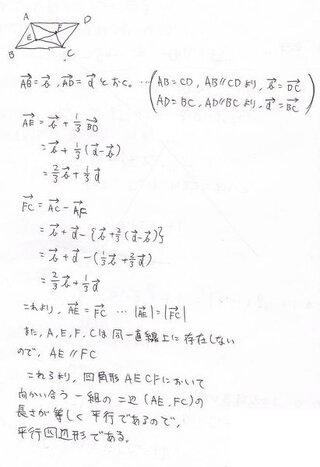 A D
E F
B C
AB→ = b→, AD→ = d→ とおく。 … (AB = CD, AB // CD より, b→ = DC→
AD = BC, AD // BC より, d→ = BC→)
AE→ = b→ + 1/3 BD→
= b→ + 1/3 (d→ - b→)
= 2/3 b→ + 1/3 d→
FC→ = AC→ - AF→
= b→ + d→ - {b→ + 2/3 (d→ - b→)}
= b→ + d→ - (1/3 b→ + 2/3 d→)
= 2/3 b→ + 1/3 d→
これより, AE→ = FC→ … |AE→| = |FC→|
また, A, E, F, C は同一直線上に存在しない
ので, AE // FC
これらより, 四角形 AECF において
向かい合う一組の二辺 (AE, FC) の
長さが等しく平行であるので,
平行四辺形である。